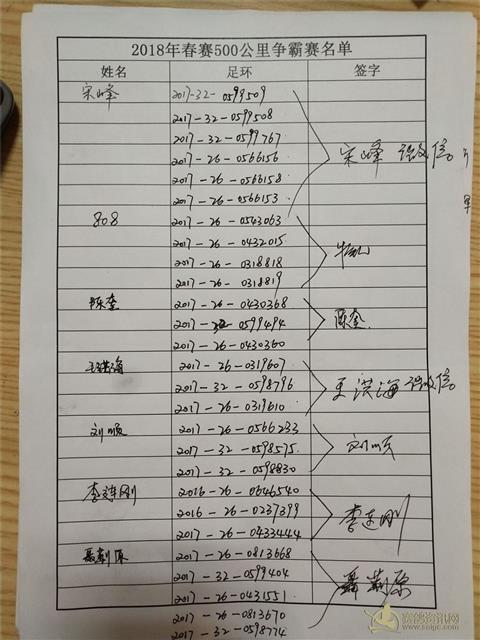 2018年春赛500公里争霸赛名单
姓名 足环 签字
宋峰 2017-32-0599509
2017-32-0599508
2017-32-0599767
2017-26-0566156
宋峰
2017-26-0566158
2017-26-0566153
808 2017-26-0543063
2017-26-0432015
2017-26-0318818
2017-26-0318819
陈奎 2017-26-0430368
2017-32-0599494 陈奎
2017-26-0430360
王洪海 2017-26-0319607
2017-32-0598796 王洪海
2017-26-0319610
刘顺 2017-26-0566233
2017-32-0598575 刘顺
2017-32-0598830
李连刚 2016-26-0646540
2016-26-0237399 李连刚
2017-26-0433444
聂荆原 2017-26-0813668
2017-32-0599404 聂荆原
2017-26-0431551
2017-26-0813670
2017-32-0598774
赛鸽资讯网
www.saige.com